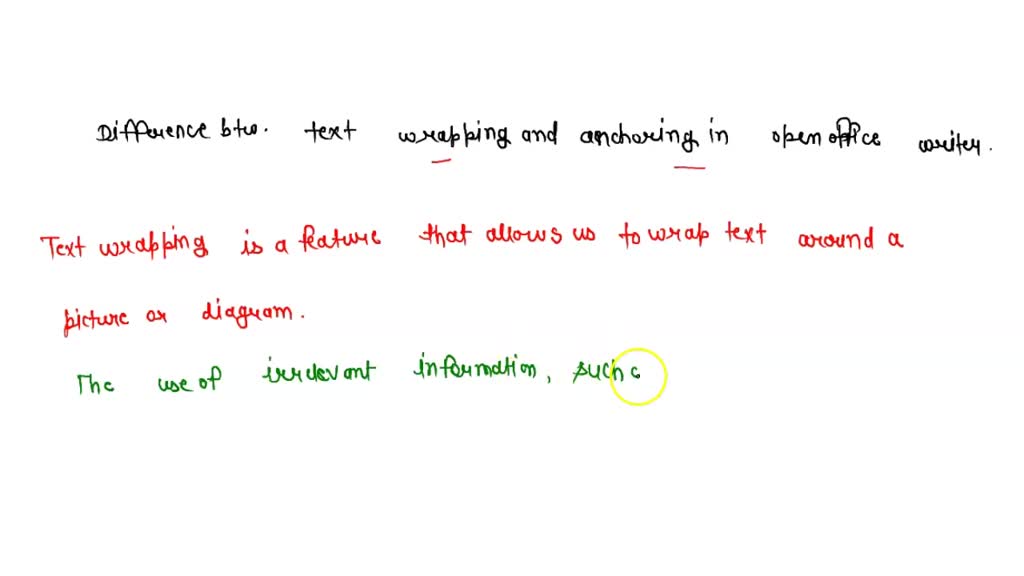 Difference btw. text wrapping and anchoring in open office writer.
Text wrapping is a feature that allows us to wrap text around a
picture or diagram.
The use of irrelevant information, such a